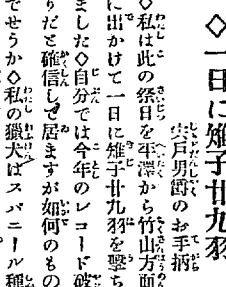 ◇一日に雉子廿九羽
宍戸男爵のお手柄
◇私は此の祭日を平澤から竹山方面
に出かけて一日に雉子廿九羽を擊ち
ました◇自分では今年のレコード破
りだと確信して居ますが如何のもの
でせうか◇私の獵犬はスパニール種